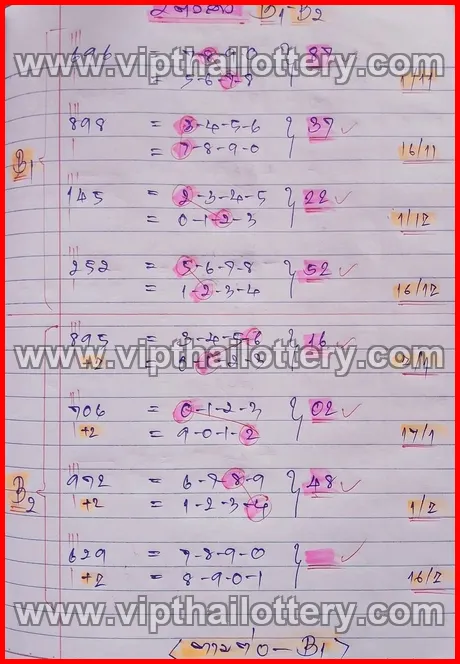 B1-B2
www.vipthailottery.com
696 = 7-8-9-0 } 87
5-6-7-8
1/11
898 = 3-4-5-6 } 37 ✓
= 7-8-9-0
16/11
B1
www.vipthailottery.com
145 = 2-3-4-5 } 22 ✓
= 0-1-2-3
1/12
252 = 5-6-7-8 } 52 ✓
= 1-2-3-4
16/12
895 = 3-4-5-6 } 16 ✓
www.vipthailottery.com
+2
706 = 0-1-2-3 } 02 ✓
+2 = 9-0-1-2
17/1
972 = 6-7-8-9 } 48 ✓
B2
+2 = 1-2-3-4
1/2
www.vipthailottery.com
629 = 7-8-9-0 }
+2 = 8-9-0-1
16/2
www.vipthailottery.com
0-B1